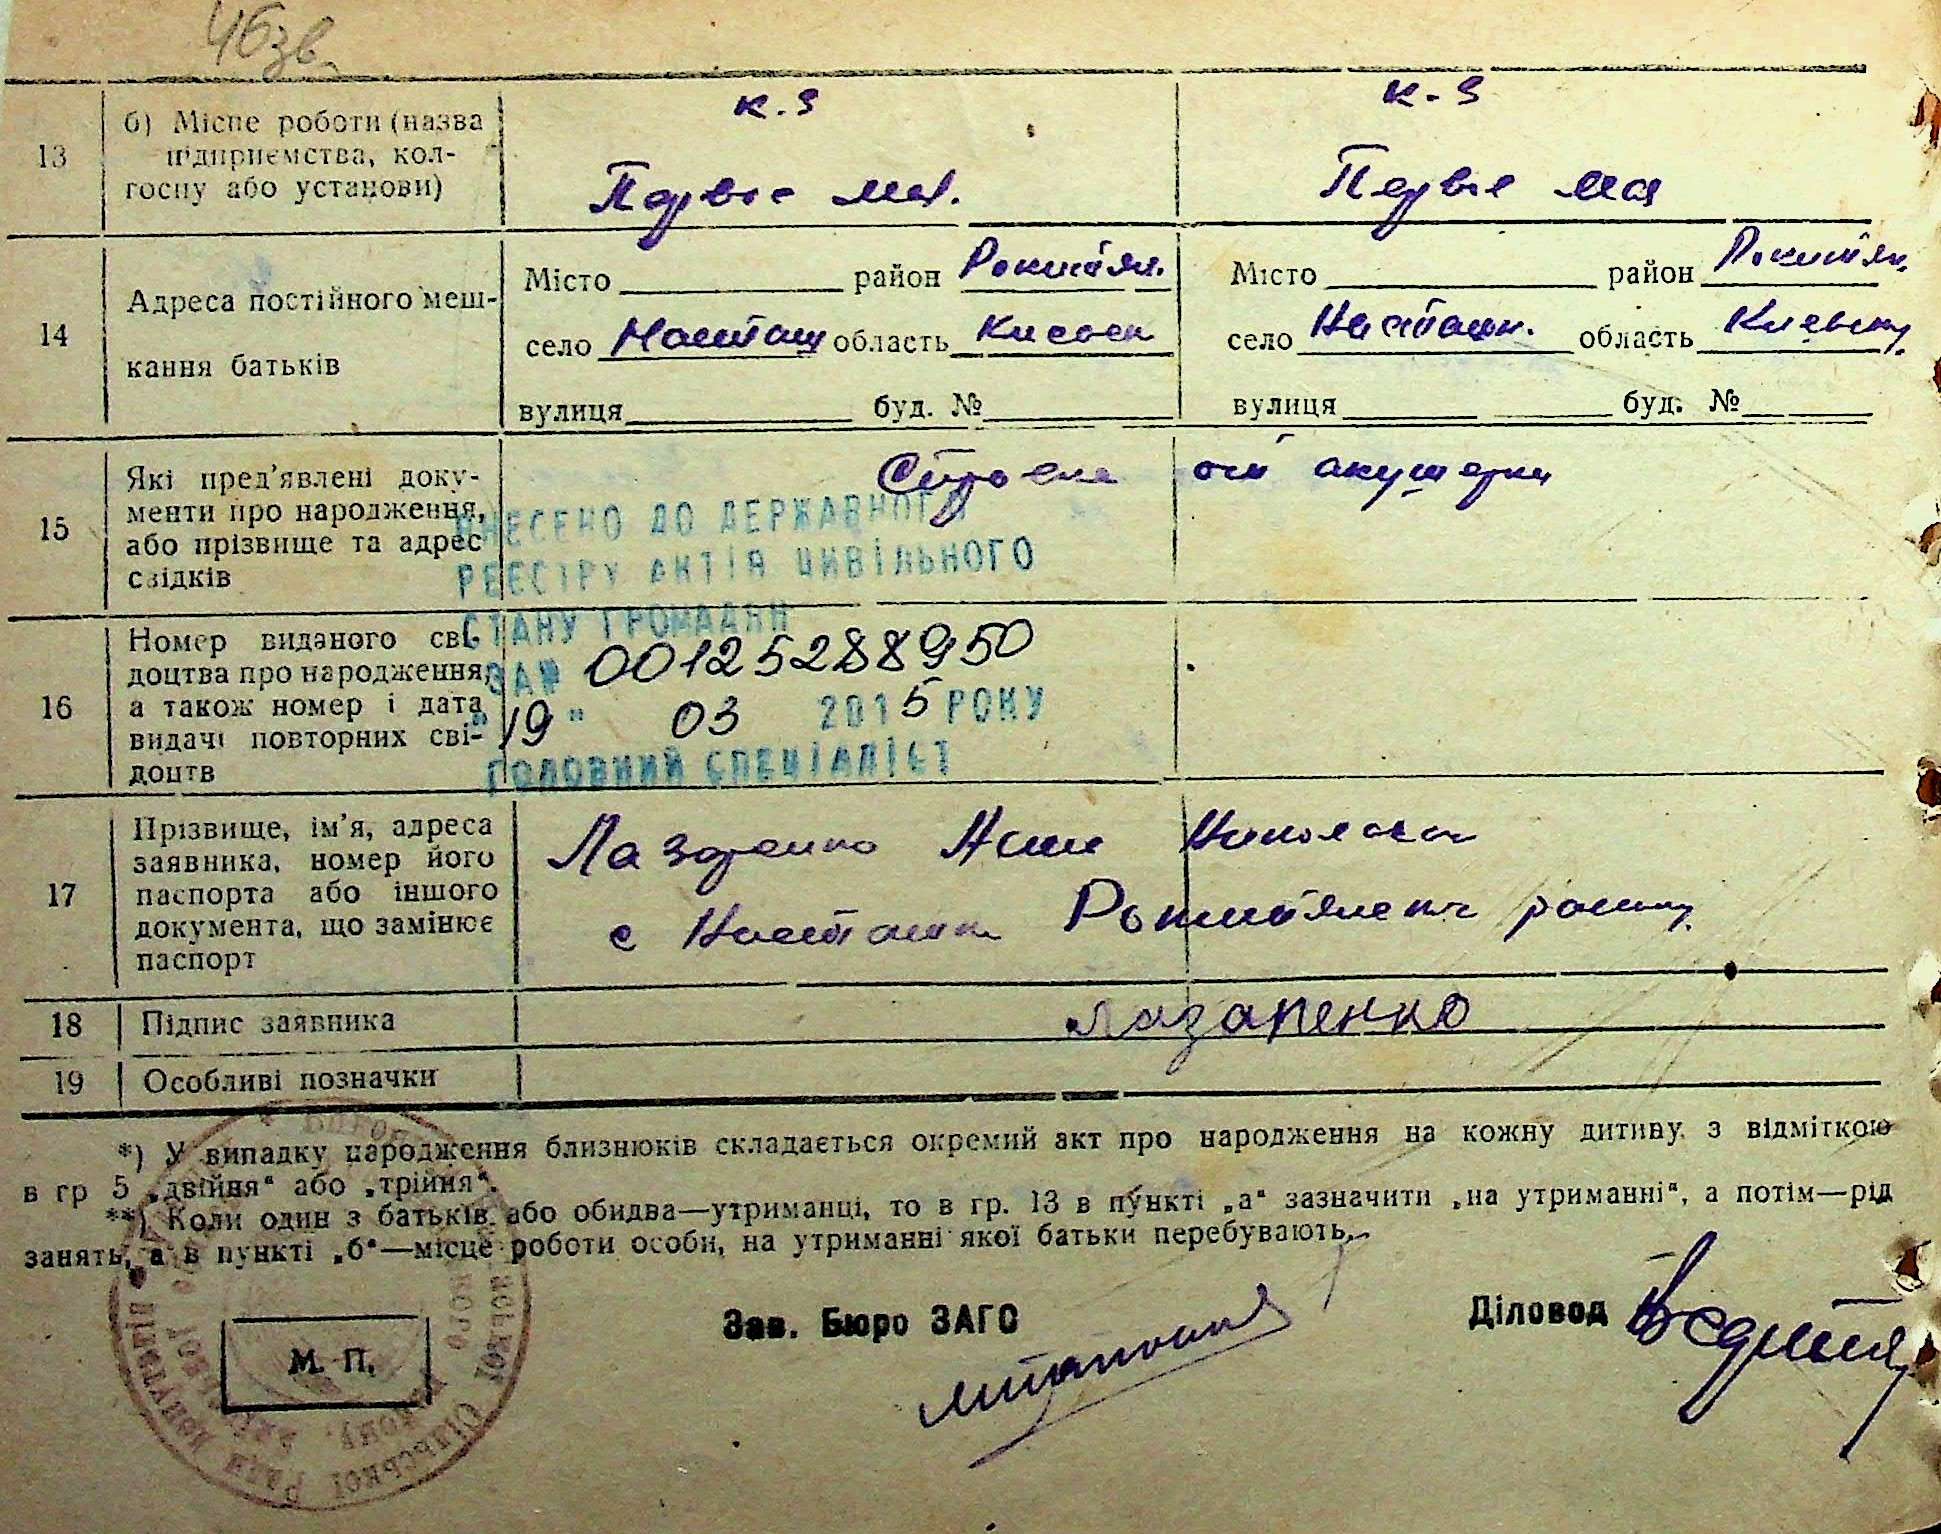 46зв.
13
б) Місце роботи (назва
підприємства, кол-
госпу або установи)
к. з
Первое мая.
к. з
Первое мая
14
Адреса постійного меш-
кання батьків
Місто район Рокитян.
село область Киевск
вулиця буд. №
Місто район Рокитян.
село Насташк. область Киевску
вулиця буд. №
15
Які пред'явлені доку-
менти про народження,
або прізвище та адрес
свідків
от акушерки
ВНЕСЕНО ДО ДЕРЖАВНОГО
РЕЄСТРУ АКТІВ ЦИВІЛЬНОГО
СТАНУ ГРОМАДЯН
ЗА № 00125288950
"19" 03 2015 РОКУ
ГОЛОВНИЙ СПЕЦІАЛІСТ
16
Номер виданого сві-
доцтва про народження,
а також номер і дата
видачі повторних сві-
доцтв
17
Прізвище, ім'я, адреса
заявника, номер його
паспорта або іншого
документа, що замінює
паспорт
Лазаренко
с Насташка
18
Підпис заявника
Лазаренко
19
Особливі позначки
*) У випадку народження близнюків складається окремий акт про народження на кожну дитину з відміткою
в гр 5 „двійня“ або „трійня“.
**) Коли один з батьків або обидва—утриманці, то в гр. 13 в пункті „а“ зазначити „на утриманні“, а потім—рід
занять, а в пункті „б“—місце роботи особи, на утриманні якої батьки перебувають.
Зав. Бюро ЗАГС
Діловод
М. П.
сільської Ради депутатів